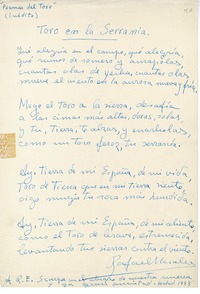 "Poemas del Toro"
(Inédito)
Toro en la Serranía.
Qué alegría en el campo, qué alegría,
qué rumor de romero y amapolas,
cuantas olas de yerba, cuantas olas
mueve el viento en la aurora
Muge el Toro a la sierra, desafía
a las cimas más altas, duras, solas,
y tu, Tierra, te alzas y enarbolas,
como un toro feroz, tu serranía.
Ay, Tierra de mi España, de mi vida
Toro de Tierra que en su tierra siento
oigo mugir tu voz más
Ay, Tierra de mi España, de mi aliento,
como el Toro de
levantando tus sierras contra el viento.
Rafael Morales
A R. E.